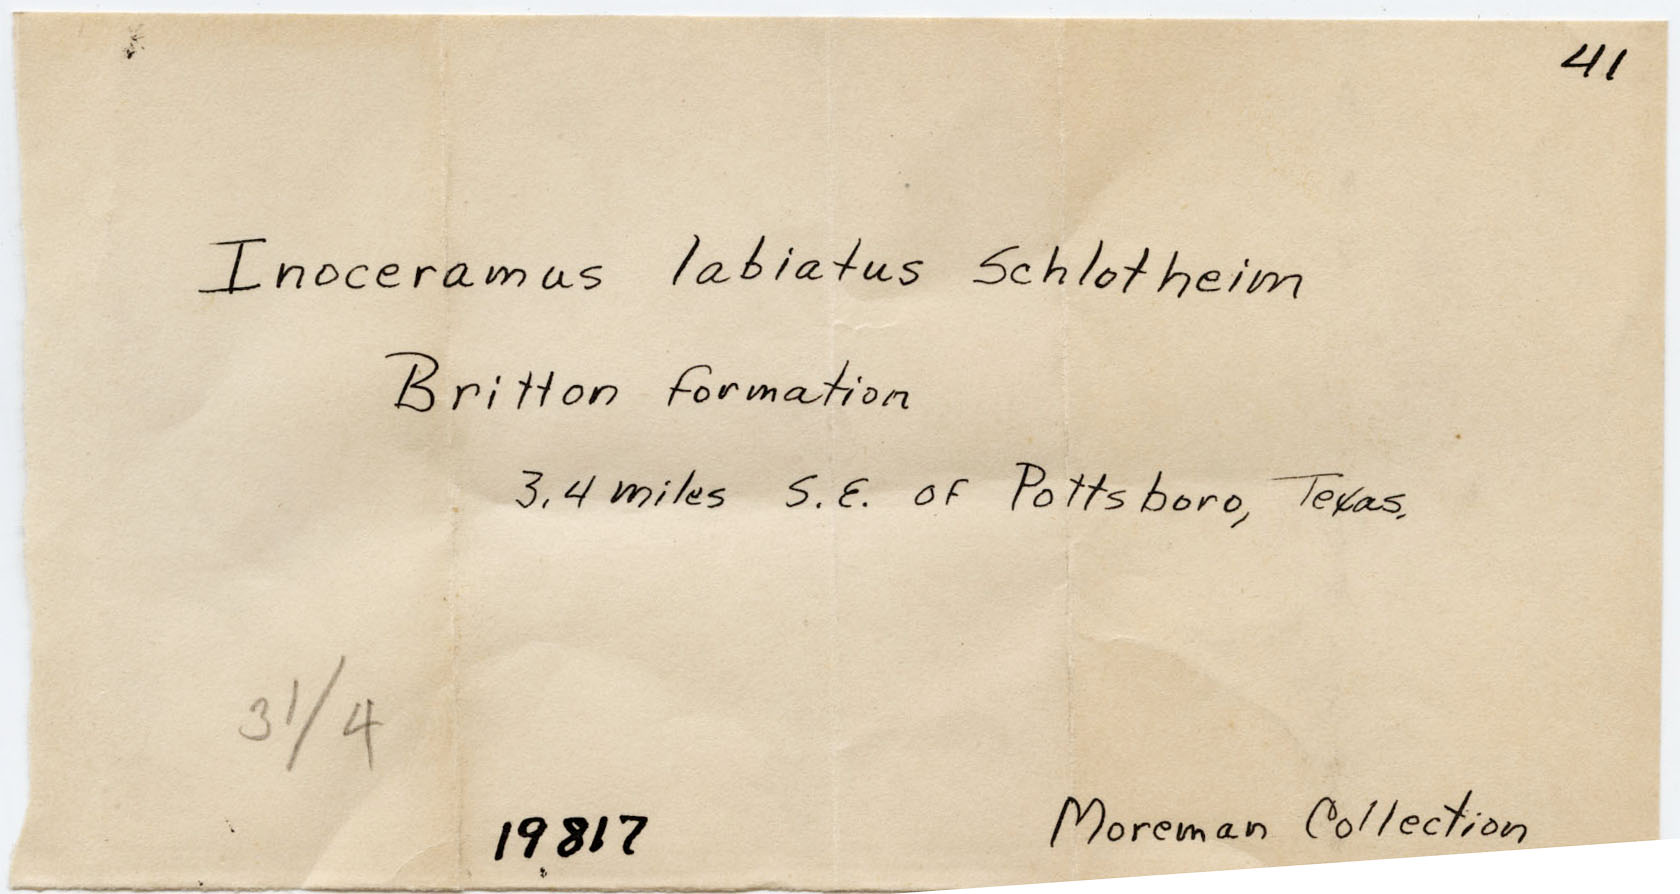 41
Inoceramus labiatus Schlotheim
Britton formation
3.4 miles S.E. of Pottsboro, Texas.
3 1/4
19817
Moreman Collection